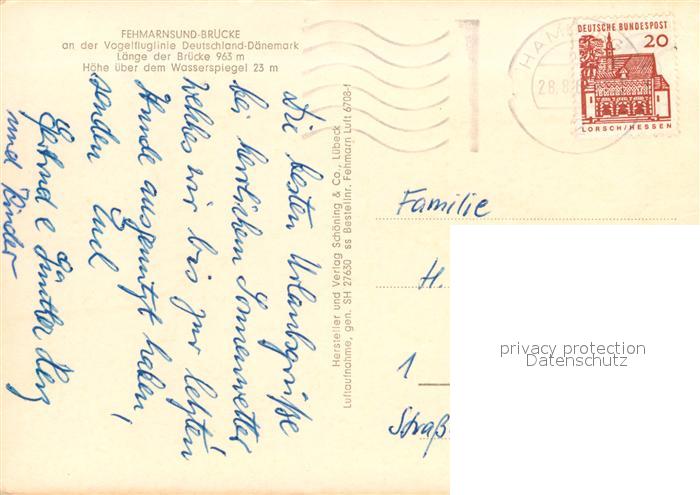 FEHMARNSUND-BRÜCKE
an der Vogelfluglinie Deutschland-Dänemark
Länge der Brücke 963 m
Höhe über dem Wasserspiegel 23 m
Die besten Urlaubsgrüße
bei herrlichem Sonnenwetter
welches wir bis zur letzten
Stunde ausgenutzt haben,
senden Euch
und Kinder
Hersteller und Verlag Schöning & Co., Lübeck
Luftaufnahme, gen. SH 27630 ss Bestellnr. Fehmarn Luft 6708-f
HAM
28.8
DEUTSCHE BUNDESPOST
20
LORSCH/HESSEN
Familie
H.
1
Straß
privacy protection
Datenschutz